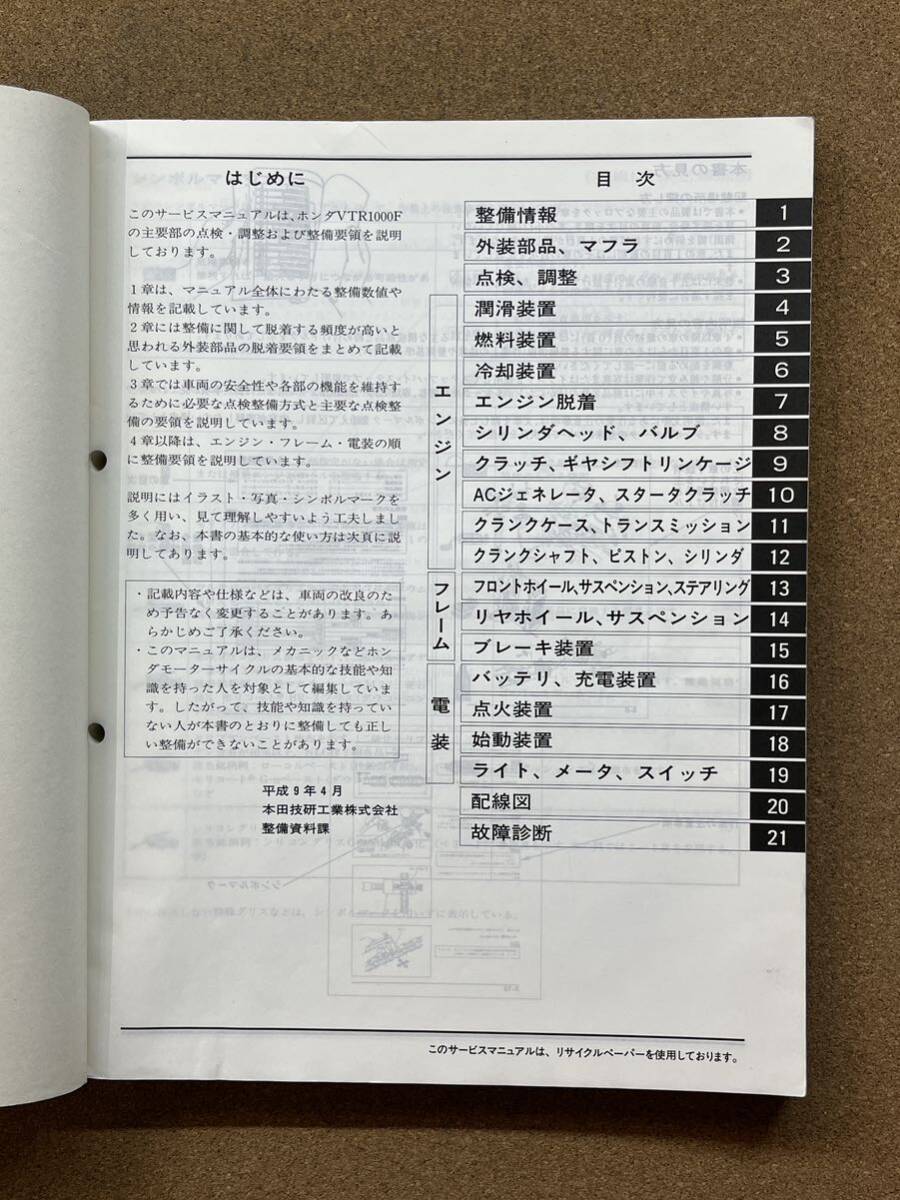 はじめに
このサービスマニュアルは、ホンダVTR1000F
の主要部の点検・調整および整備要領を説明
しております。
1章は、マニュアル全体にわたる整備数値や
情報を記載しています。
2章には整備に関して脱着する頻度が高いと
思われる外装部品の脱着要領をまとめて記載
しています。
3章では車両の安全性や各部の機能を維持す
るために必要な点検整備方式と主要な点検整
備の要領を説明しています。
4章以降は、エンジン・フレーム・電装の順
に整備要領を説明しています。
説明にはイラスト・写真・シンボルマークを
多く用い、見て理解しやすいよう工夫しまし
た。なお、本書の基本的な使い方は次頁に説
明してあります。
・記載内容や仕様などは、車両の改良のた
め予告なく変更することがあります。あ
らかじめご了承ください。
・このマニュアルは、メカニックなどホン
ダモーターサイクルの基本的な技能や知
識を持った人を対象として編集していま
す。したがって、技能や知識を持ってい
ない人が本書のとおりに整備しても正し
い整備ができないことがあります。
平成9年4月
本田技研工業株式会社
整備資料課
目 次
整備情報 1
外装部品、マフラ 2
点検、調整 3
エンジン
潤滑装置 4
燃料装置 5
冷却装置 6
エンジン脱着 7
シリンダヘッド、バルブ 8
クラッチ、ギヤシフトリンケージ 9
ACジェネレータ、スタータクラッチ 10
クランクケース、トランスミッション 11
クランクシャフト、ピストン、シリンダ 12
フレーム
フロントホイール、サスペンション、ステアリング 13
リヤホイール、サスペンション 14
ブレーキ装置 15
電装
バッテリ、充電装置 16
点火装置 17
始動装置 18
ライト、メータ、スイッチ 19
配線図 20
故障診断 21
このサービスマニュアルは、リサイクルペーパーを使用しております。